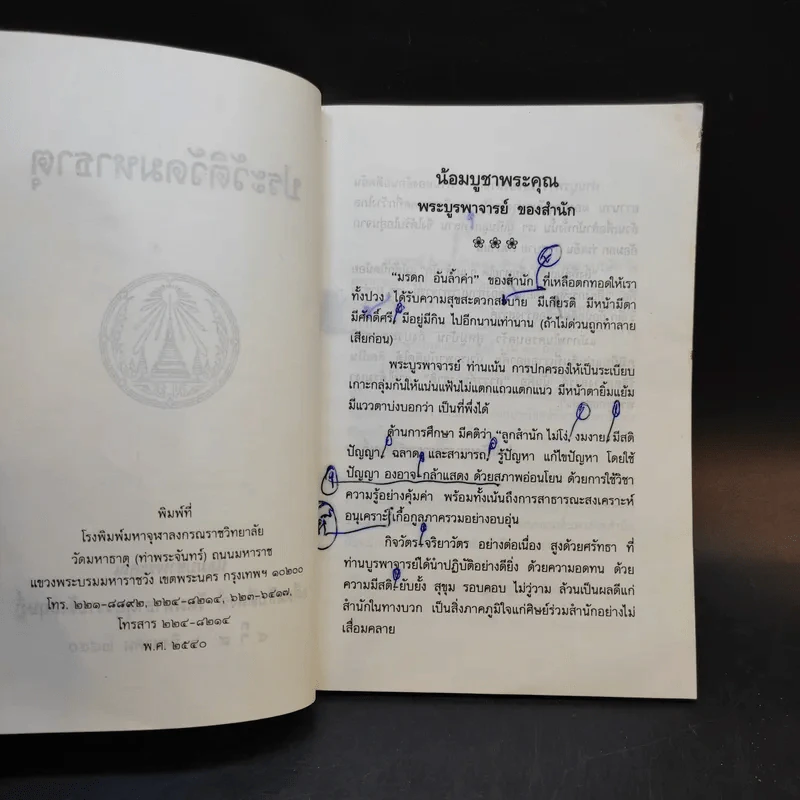 พิมพ์ที่
โรงพิมพ์มหาจุฬาลงกรณราชวิทยาลัย
วัดมหาธาตุ (ท่าพระจันทร์) ถนนมหาราช
แขวงพระบรมมหาราชวัง เขตพระนคร กรุงเทพฯ ๑๐๒๐๐
โทร. ๒๒๑-๘๘๙๒, ๒๒๔-๘๒๑๔, ๖๒๓-๖๔๑๗,
โทรสาร ๒๒๔-๘๒๑๔
พ.ศ. ๒๕๔๐
น้อมบูชาพระคุณ
พระบูรพาจารย์ ของสำนัก
"มรดก อันล้ำค่า" ของสำนัก ที่เหลือตกทอดให้เรา
ทั้งปวง ได้รับความสุขสะดวกสบาย มีเกียรติ มีหน้ามีตา
มีศักดิ์ศรี มีอยู่มีกิน ไปอีกนานเท่านาน (ถ้าไม่ด่วนถูกทำลาย
เสียก่อน)
พระบูรพาจารย์ ท่านเน้น การปกครองให้เป็นระเบียบ
เกาะกลุ่มกันให้แน่นแฟ้นไม่แตกแถวแตกแนว มีหน้าตายิ้มแย้ม
มีแววตาบ่งบอกว่า เป็นที่พึ่งได้
ด้านการศึกษา มีคติว่า "ลูกสำนัก ไม่โง่ งมงาย มีสติ
ปัญญา ฉลาด และสามารถ รู้ปัญหา แก้ไขปัญหา โดยใช้
ปัญญา องอาจ กล้าแสดง ด้วยสภาพอ่อนโยน ด้วยการใช้วิชา
ความรู้อย่างคุ้มค่า พร้อมทั้งเน้นถึงการสาธารณะสงเคราะห์
อนุเคราะ เกื้อกูลภาครวมอย่างอบอุ่น
กิจวัตร จริยาวัตร อย่างต่อเนื่อง สูงด้วยศรัทธา ที่
ท่านบูรพาจารย์ได้นำปฏิบัติอย่างดียิ่ง ด้วยความอดทน ด้วย
ความมีสติ ยับยั้ง สุขุม รอบคอบ ไม่วู่วาม ล้วนเป็นผลดีแก่
สำนักในทางบวก เป็นสิ่งภาคภูมิใจแก่ศิษย์ร่วมสำนักอย่างไม่
เสื่อมคลาย